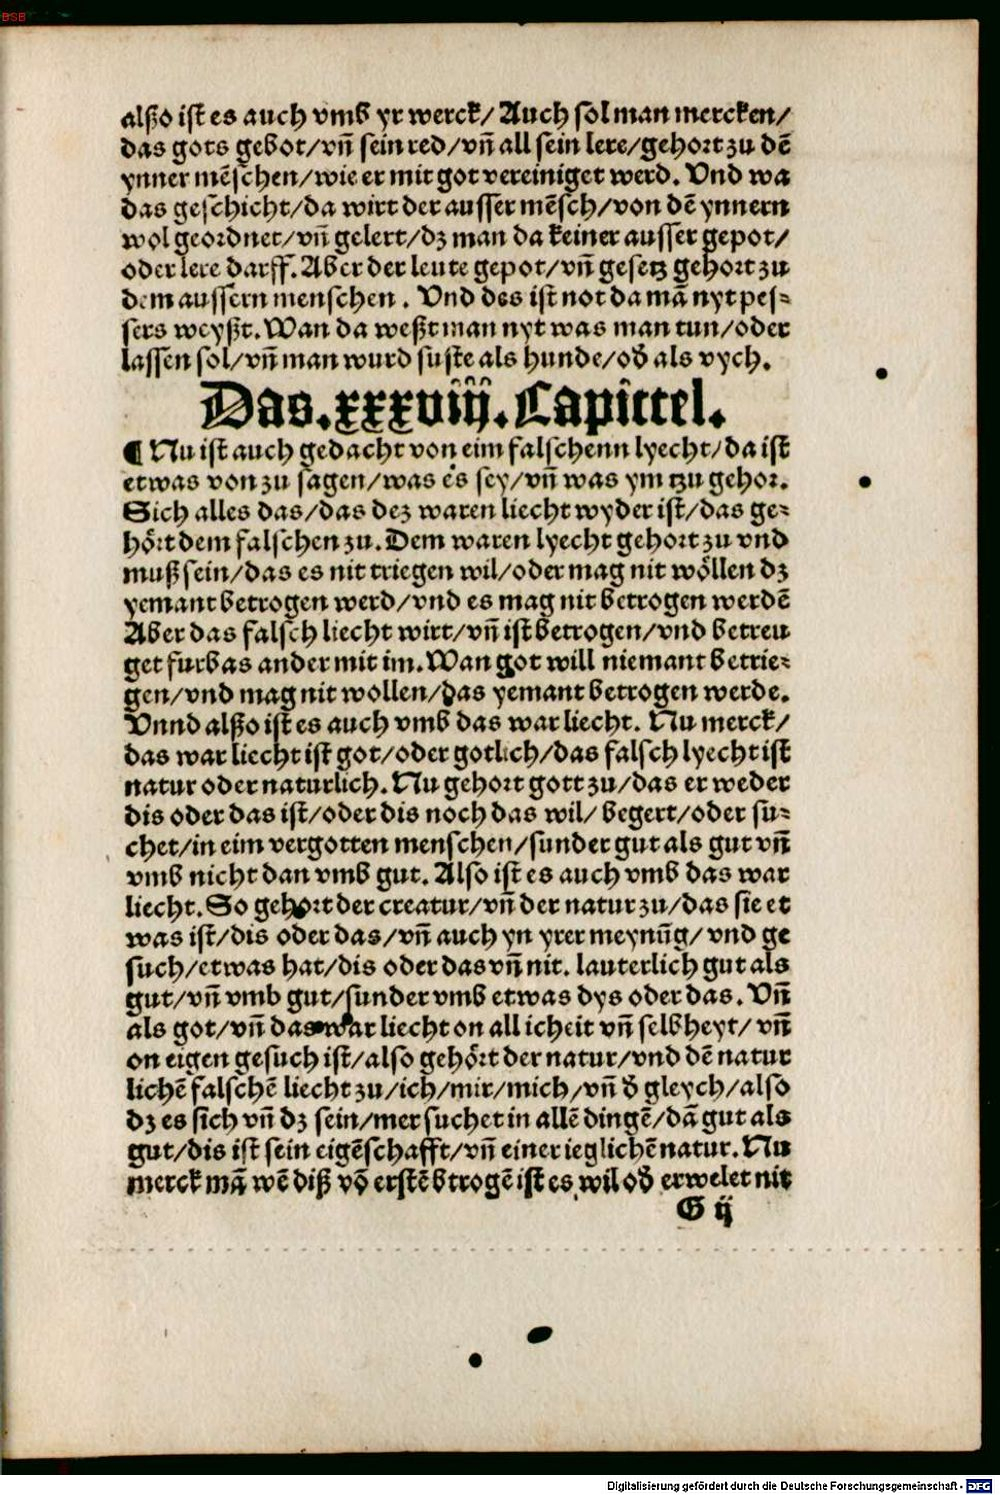 BSB
alßo ist es auch vmb yr werck/ Auch sol man mercken/
das gots gebot/vn̄ sein red/vn̄ all sein lere/gehort zu dē
ynner mēschen/wie er mit got vereiniget werd. Vnd wa
das geschicht/da wirt der ausser mēsch/von dē ynnern
wol geordnet/vn̄ gelert/dz man da keiner ausser gepot/
oder lere darff. Aber der leute gepot/vn̄ gesetz gehort zu
dem aussern menschen . Vnd des ist not da mā nyt pes⸗
sers weyßt. Wan da weßt man nyt was man tun/oder
lassen sol/vn̄ man wurd suste als hunde/od̄ als vych.
Das.xxxviij.Capittel.
¶ Nu ist auch gedacht von eim falschenn lyecht/da ist
etwas von zu sagen/was es sey/vn̄ was ym tzu gehor.
Sich alles das/das dez waren liecht wyder ist/das ge⸗
hört dem falschen zu. Dem waren lyecht gehort zu vnd
muß sein/das es nit triegen wil/oder mag nit wöllen dz
yemant betrogen werd/vnd es mag nit betrogen werdē
Aber das falsch liecht wirt/vn̄ ist betrogen/vnd betreu
get furbas ander mit im. Wan got will niemant betrie⸗
gen/vnd mag nit wollen/das yemant betrogen werde.
Vnnd alßo ist es auch vmb das war liecht. Nu merck/
das war liecht ist got/oder gotlich/das falsch lyecht ist
natur oder naturlich. Nu gehort gott zu/das er weder
dis oder das ist/oder dis noch das wil/ begert/oder su⸗
chet/in eim vergotten menschen/sunder gut als gut vn̄
vmb nicht dan vmb gut. Also ist es auch vmb das war
liecht. So gehort der creatur/vn̄ der natur zu/das sie et
was ist/dis oder das/vn̄ auch yn yrer meynūg/vnd ge
such/etwas hat/dis oder das vn̄ nit. lauterlich gut als
gut/vn̄ vmb gut/sunder vmb etwas dys oder das. Vn̄
als got/vn̄ das war liecht on all icheit vn̄ selbheyt/ vn̄
on eigen gesuch ist/also gehört der natur/vnd dē natur
lichē falschē liecht zu/ich/mir/mich/vn̄ d̄ gleych/also
dz es sich vn̄ dz sein/mer suchet in allē dingē/dā gut als
gut/dis ist sein eigēschafft/vn̄ einer ieglichē natur. Nu
merck mā wē diß vō erstē btrogē ist es wil od̄ erwelet nit
G ij
Digitalisierung gefördert durch die Deutsche Forschungsgemeinschaft - DFG